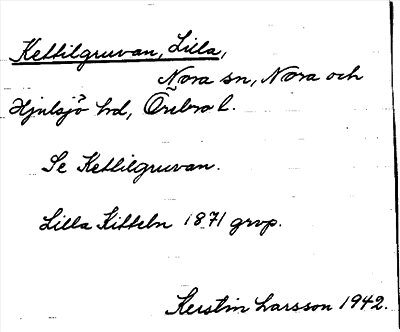 Kettilgruvan, Lilla,
Nora sn, Nora och
Hjulsjö hd, Örebro l.
Se Kettilgruvan.
Lilla Kitteln 1871 grvp.
Kerstin Larsson 1942.